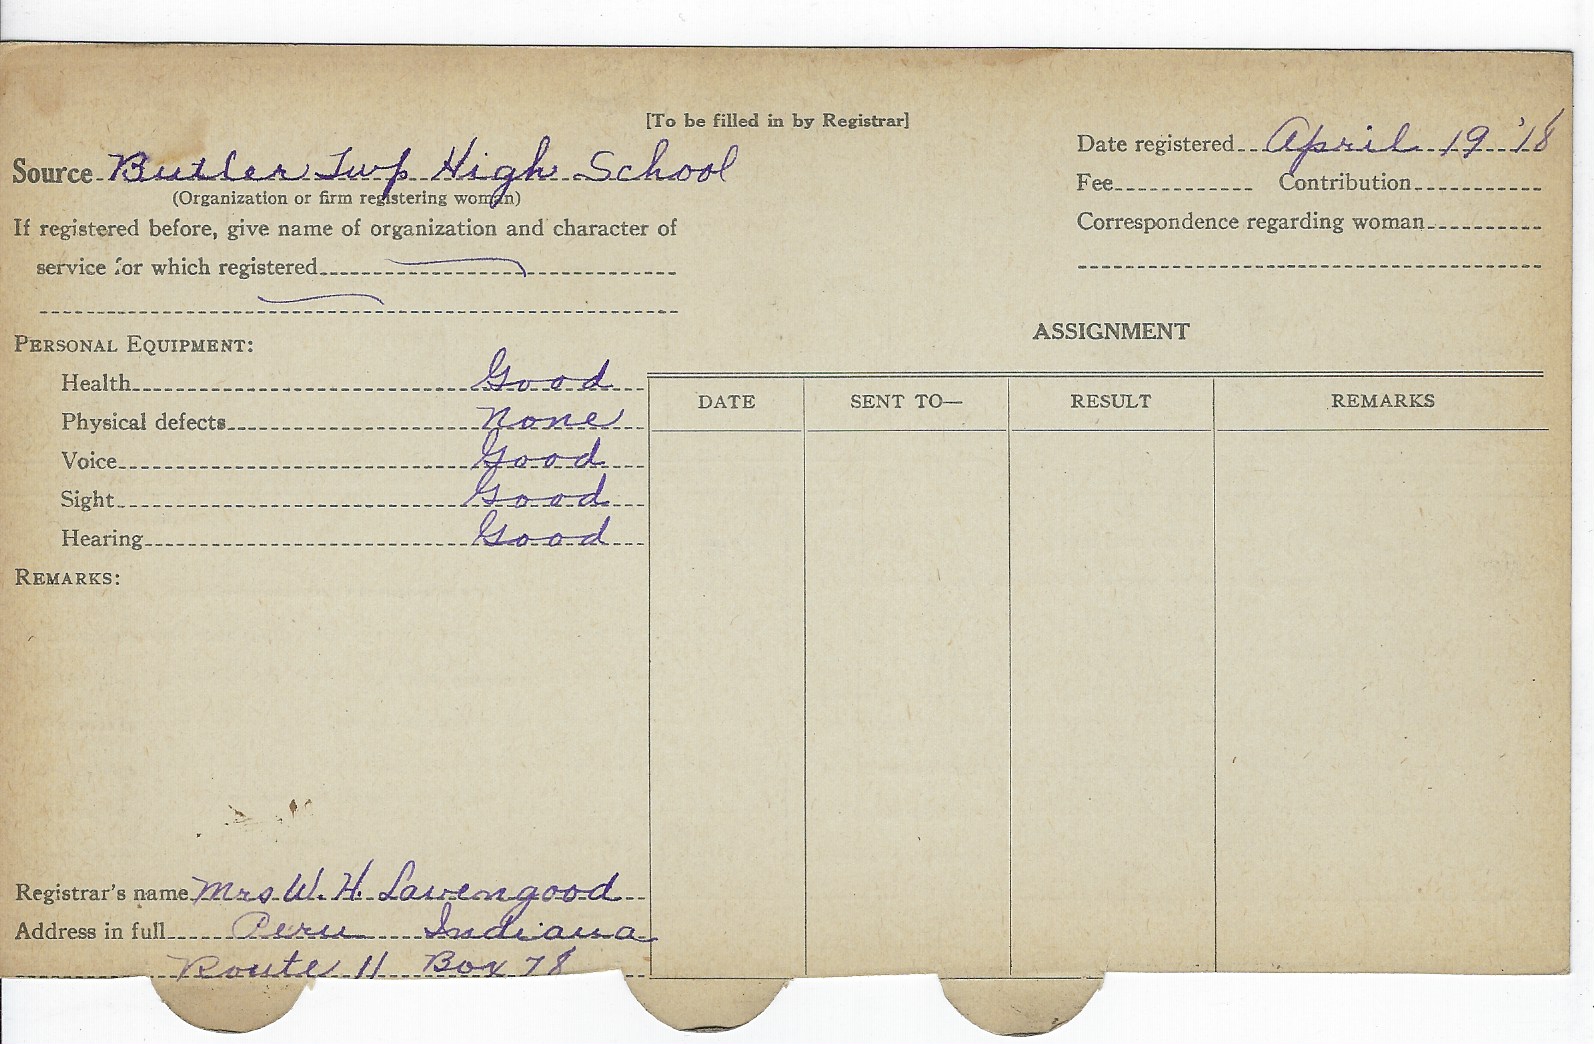 [To be filled in by Registrar]
Source Butler Twp High School
(Organization or firm registering woman)
If registered before, give name of organization and character of
service for which registered
Date registered April 19 '18
Fee Contribution
Correspondence regarding woman
PERSONAL EQUIPMENT:
Health Good
Physical defects None
Voice Good
Sight Good
Hearing Good
REMARKS:
Registrar's name Mrs W. H. Lavengood
Address in full Peru Indiana
Route 11 Box 78
ASSIGNMENT
DATE SENT TO— RESULT REMARKS